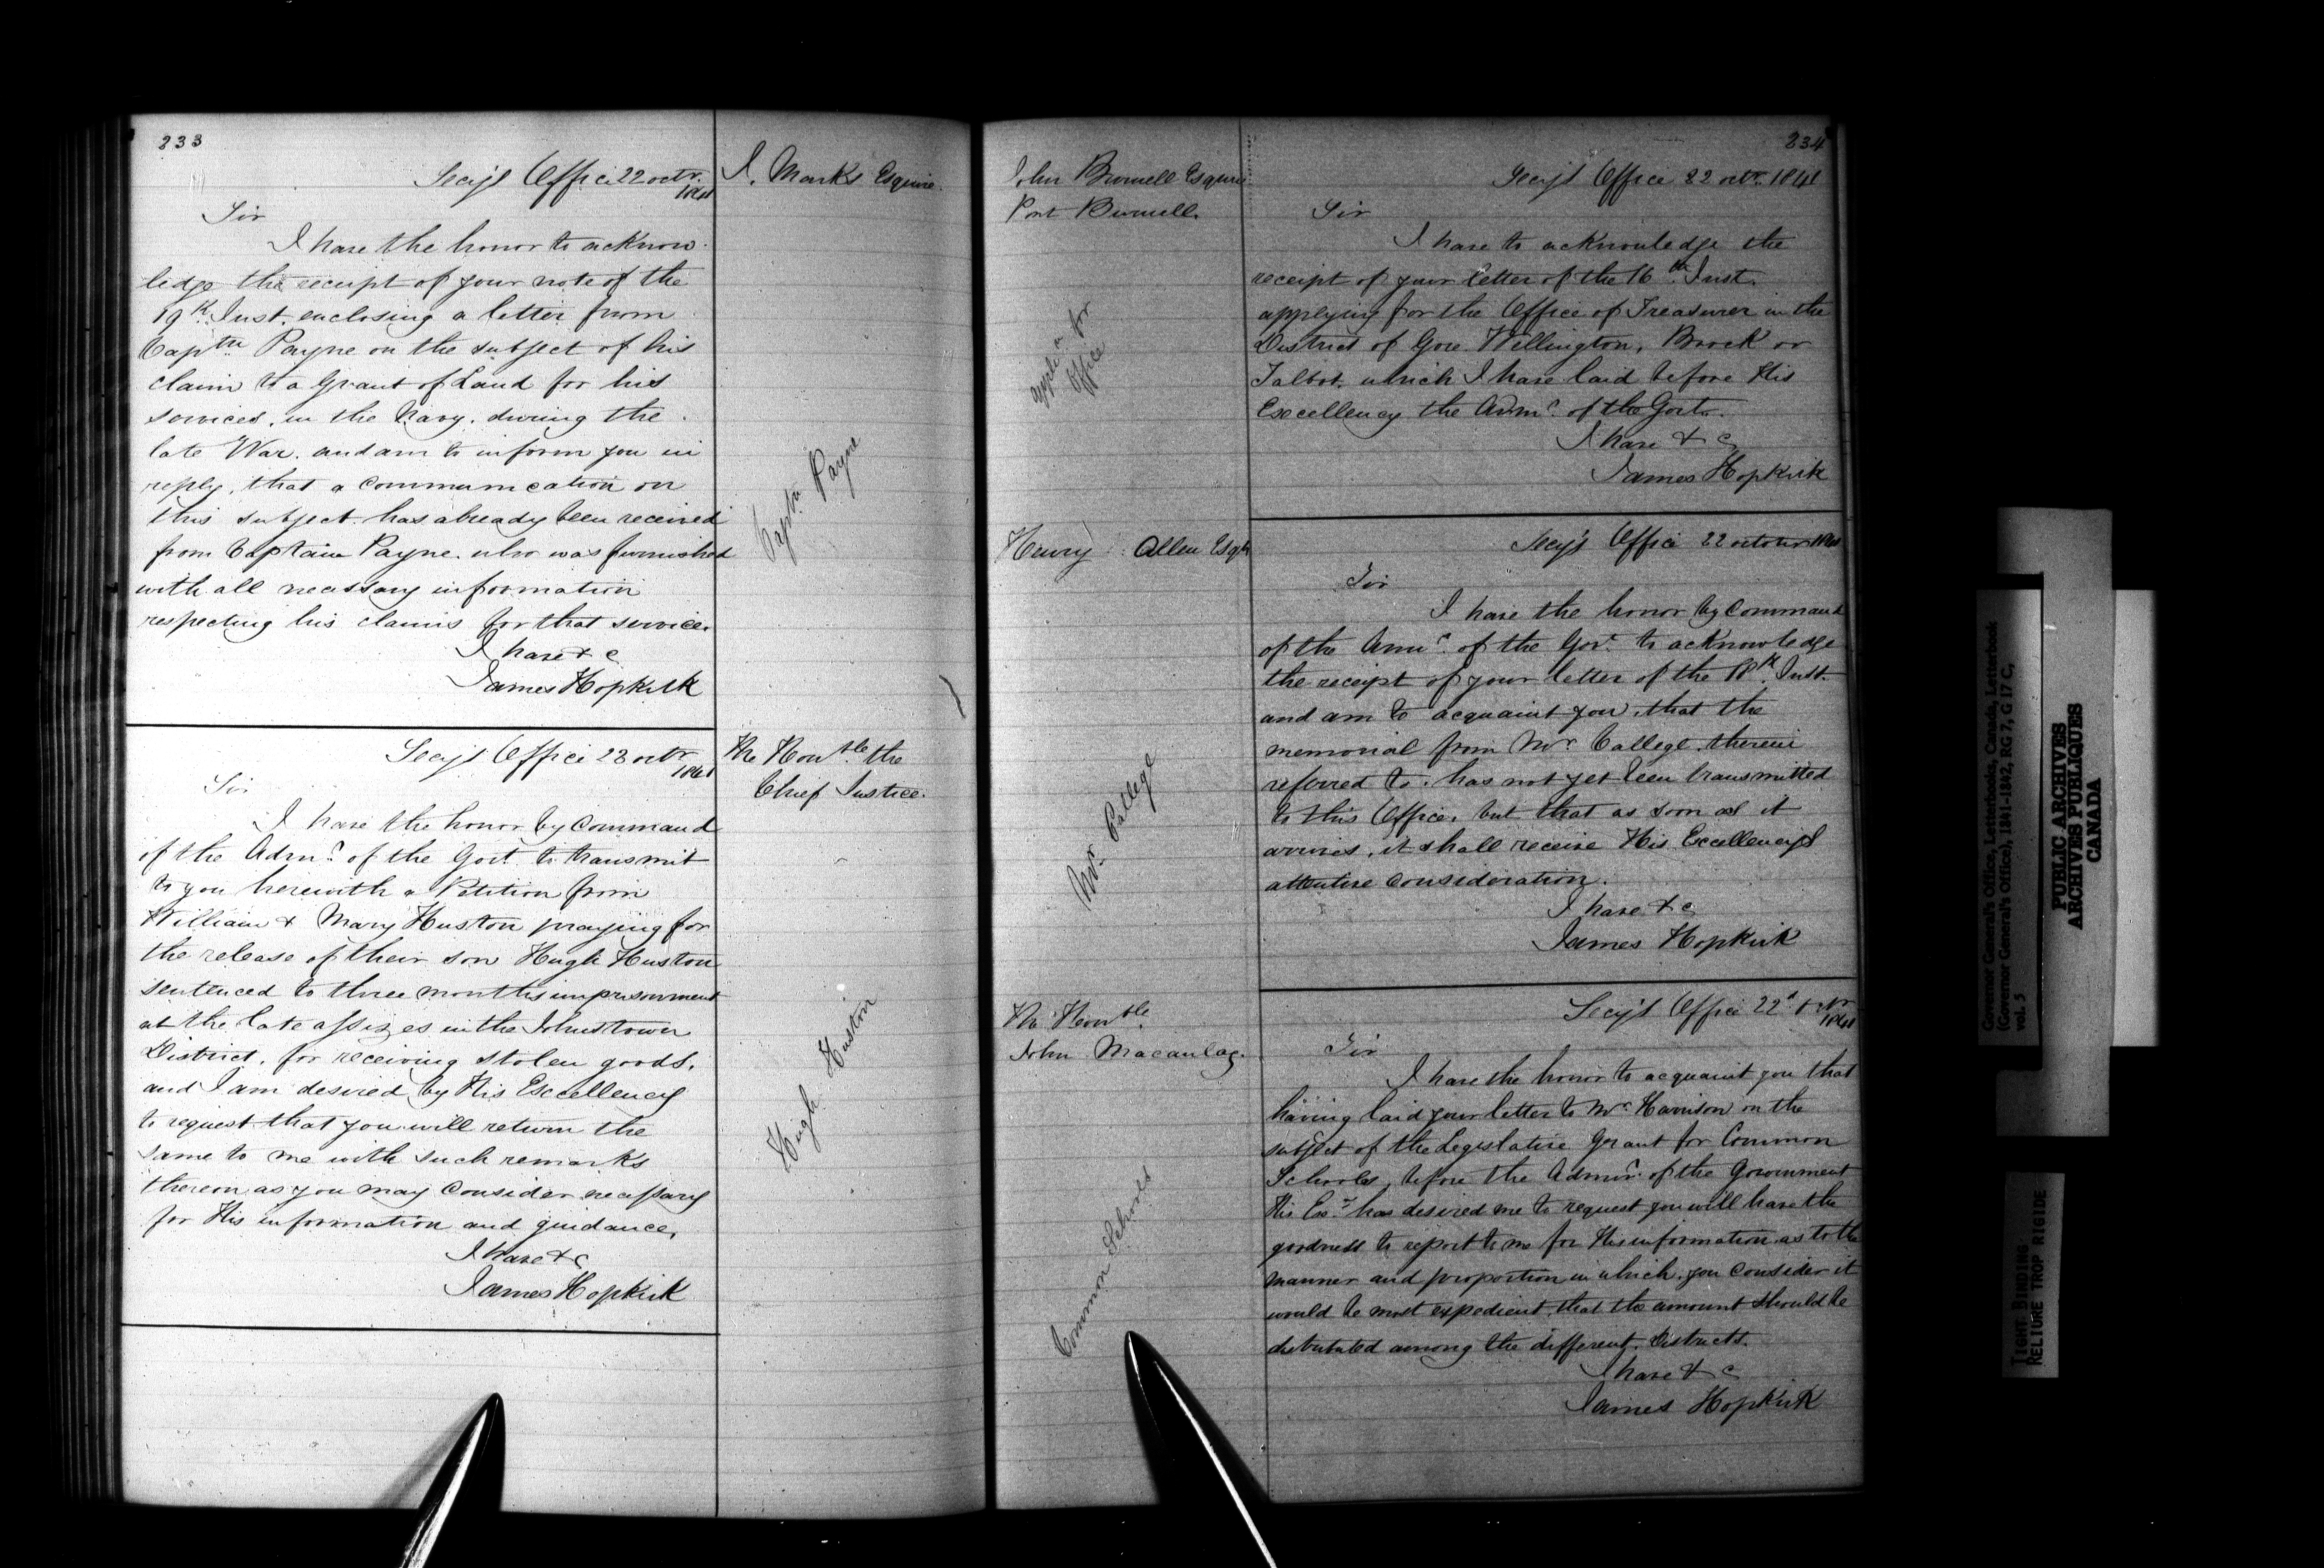 233
Secy's Office 22 octr.
1841
I. Marks Esquire.
Sir
I have the honor to acknow-
ledge the receipt of your note of the
19th Inst. enclosing a letter from
Captn Payne on the subject of his
claim to a Grant of Land for his
services, in the Navy, during the
late War. and am to inform you in
reply, that a communication on
this subject. has already been received
from Captain Payne. who was furnished
with all necessary information
respecting his claims for that service.
I have & c
James Hopkirk
Captn. Payne
Secy's Office 23 octr
1841
The Honble. the
Chief Justice.
Sir
I have the honor by Command
of the Admr. of the Govt. to transmit
to you herewith a Petition from
William & Mary Huston praying for
the release of their son Hugh Huston
sentenced to three months imprisonment
at the late assizes in the Johnstown
District, for receiving stolen goods,
and I am desired by His Excellency
to request that you will return the
same to me with such remarks
thereon as you may consider necessary
for His information and guidance,
I have & c
James Hopkirk
Hugh Huston
234
John Burwell Esquire
Port Burwell.
Secy's Office 22 octr. 1841
Sir
I have to acknowledge the
receipt of your letter of the 16th Inst.
applying for the Office of Treasurer in the
District of Gore Wellington, Brock or
Talbot, which I have laid before His
Excellency the Admr. of the Govt.
I have & c
James Hopkirk
appln for
Office
Henry Allen Esqr
Secy's Office 22 october 1841
Sir
I have the honor by Command
of the Admr. of the Govt. to acknowledge
the receipt of your letter of the 18th Inst.
and am to acquaint you, that the
memorial from Mr. Callege. therein
referred to. has not yet been transmitted
to this Office, but that as soon as it
arrives, it shall receive His Excellency's
attentive consideration.
I have & c
James Hopkirk
Mr.
The Honble.
John Macaulay.
Secy's Office 22d octr
1841
Sir
I have the honor to acquaint you that
having laid your letter to Mr. Harrison on the
subject of the Legislative Grant for Common
Schools, before the Admr. of the Government
His Exy. has desired me to request you will have the
goodness to report to me for His information as to the
manner and proportion in which, you consider it
would be most expedient that the amount should be
distributed among the different Districts.
I have & c
James Hopkirk
Common Schools
Governor General's Office, Letterbooks, Canada, Letterbook
(Governor General's Office), 1841-1842, RG 7, G 17 C,
vol. 5
PUBLIC ARCHIVES
ARCHIVES PUBLIQUES
CANADA
TIGHT BINDING
RELIURE TROP RIGIDE